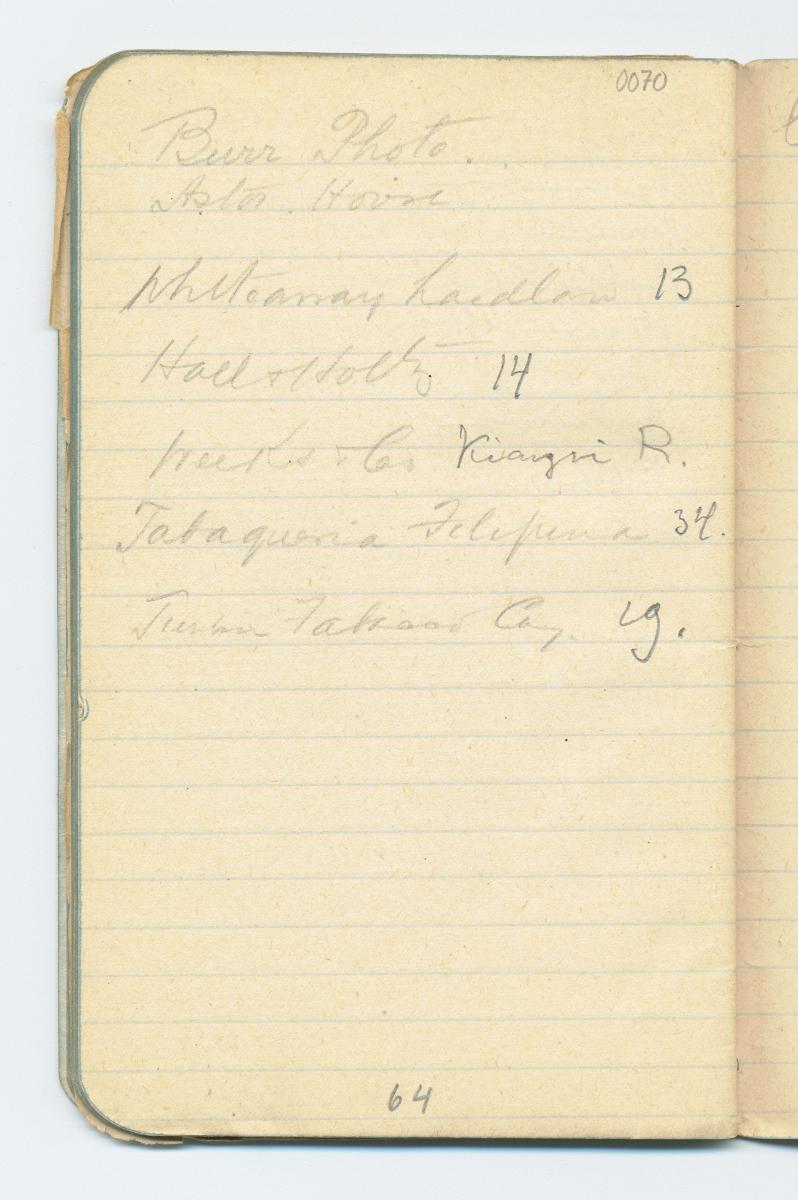 0070
Burr Photo.
Astor House
Whiteaway Laidlaw 13
Hall & Holtz 14
Weeks & Co Kiangsi R.
Tabaqueria Filipina 34.
Tobacco Coy. 19.
64